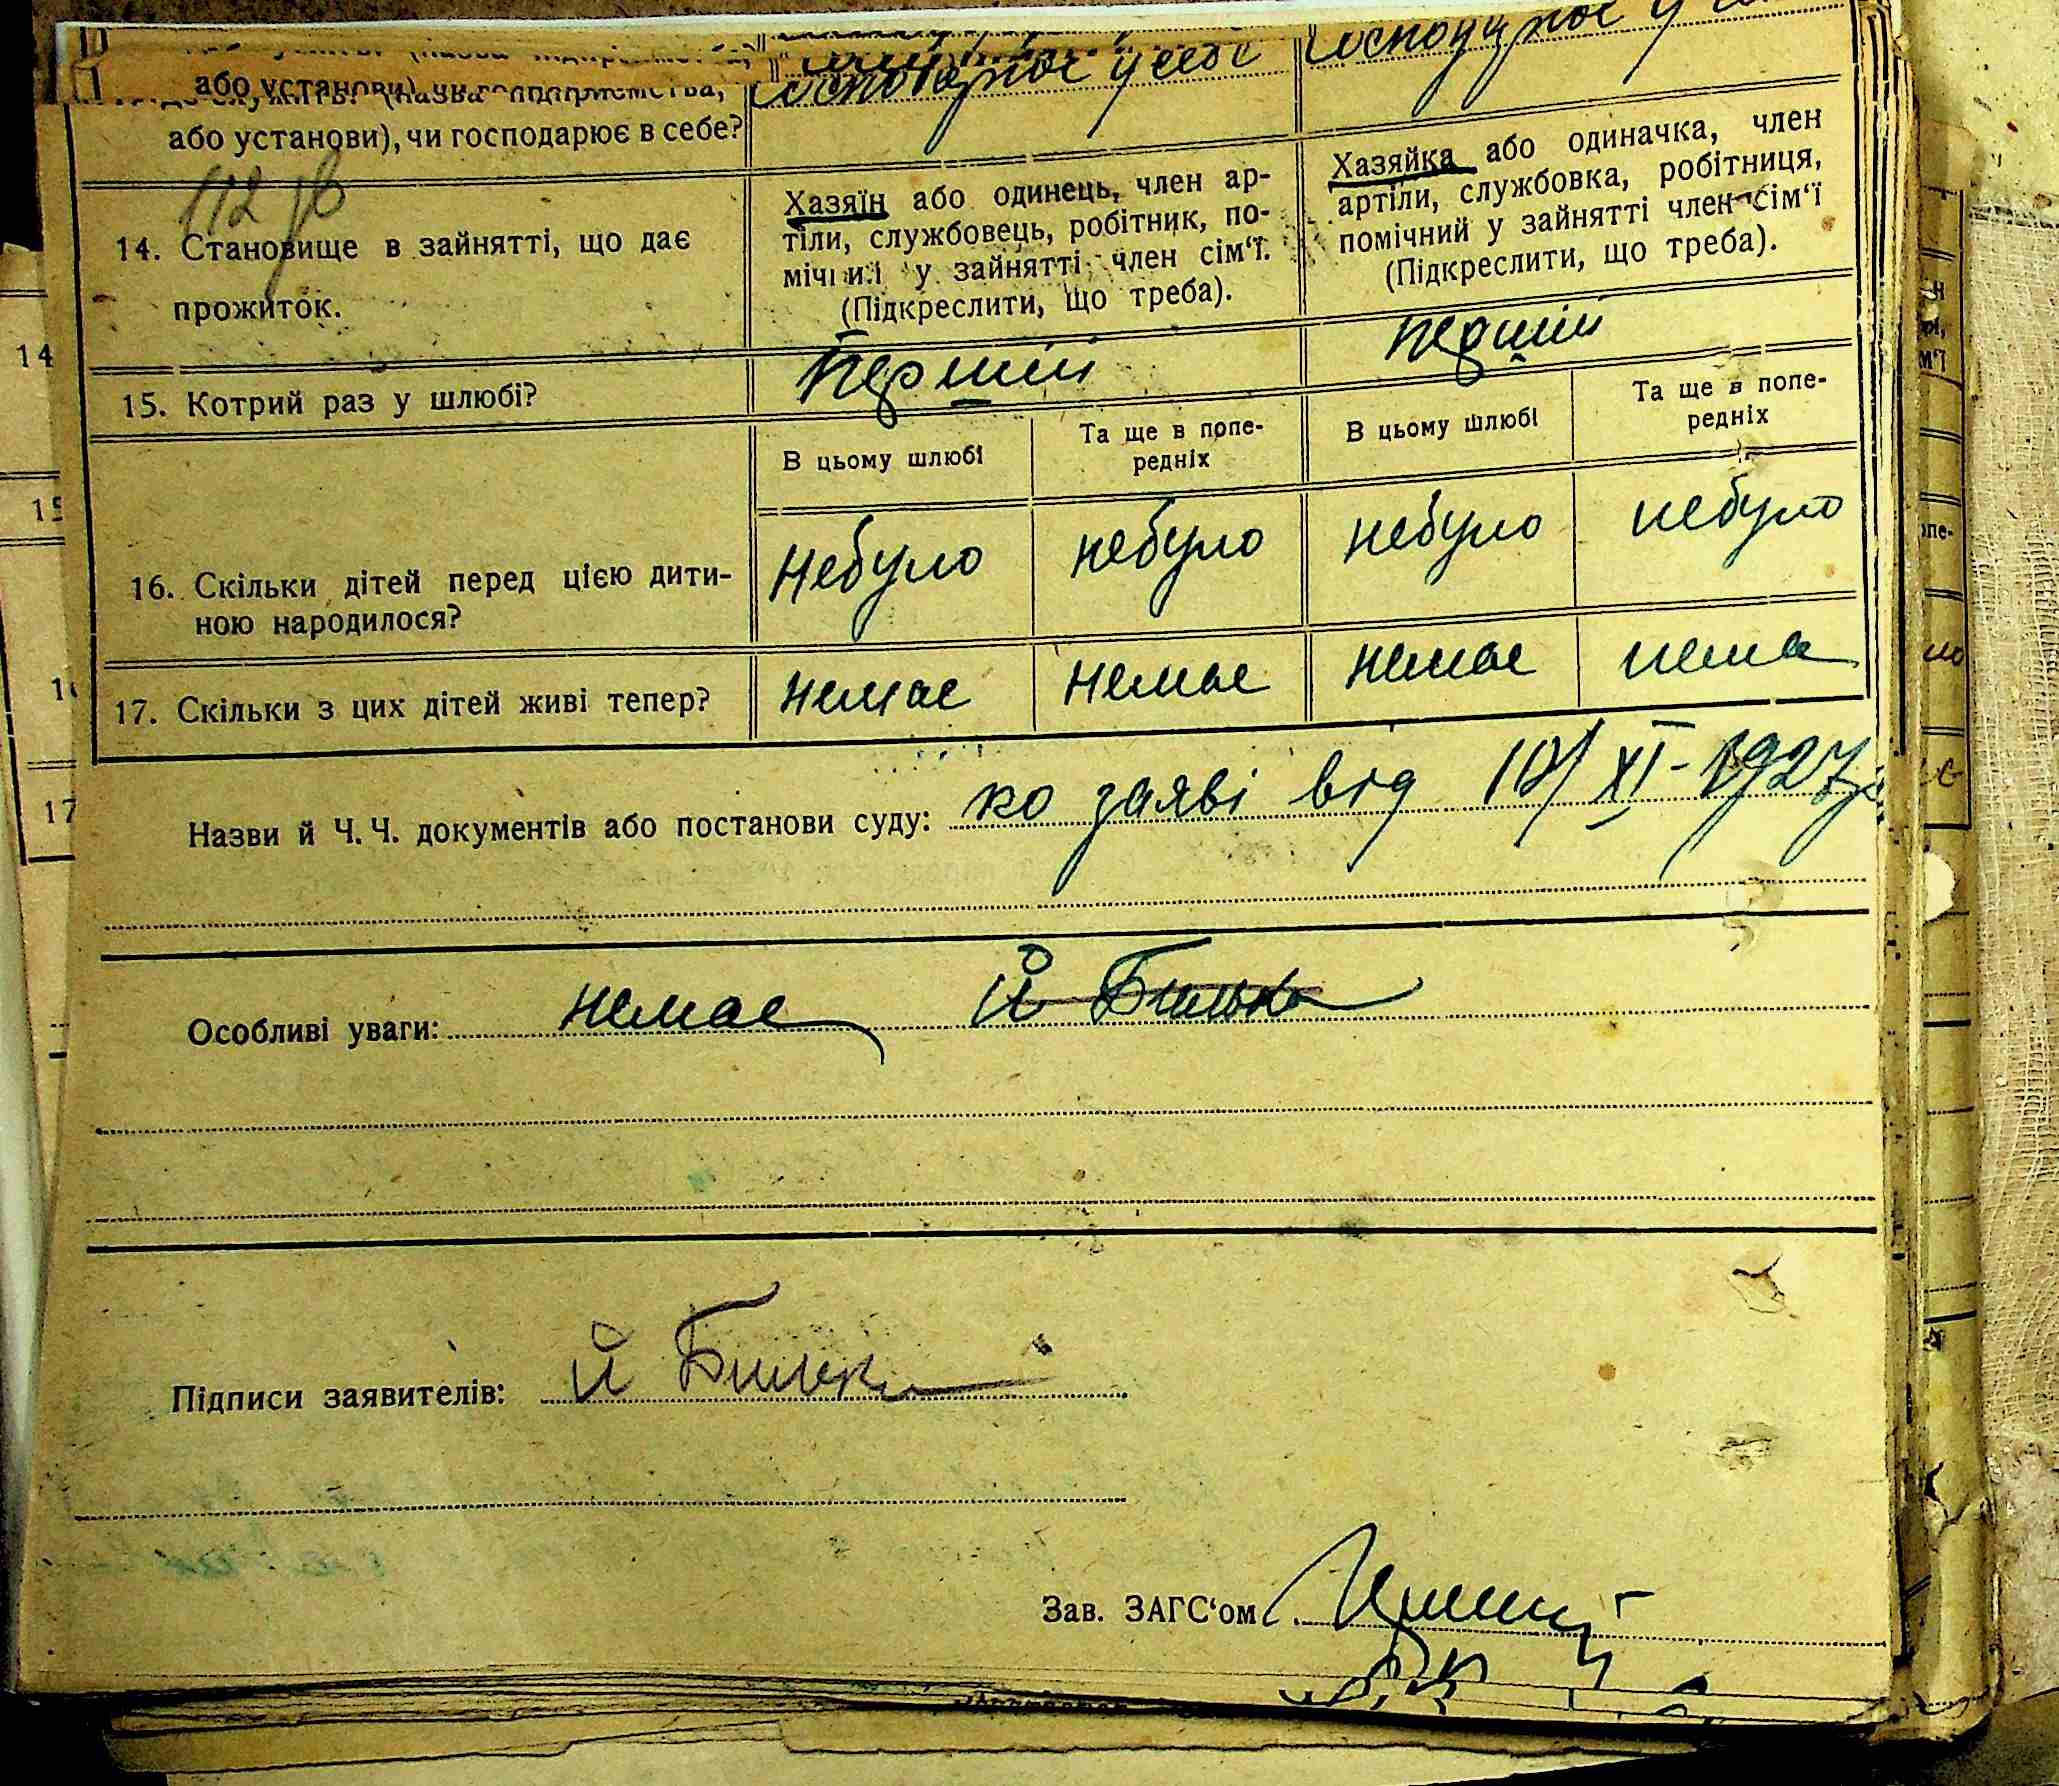 або установи), чи господарює в себе?
господарює у себе
112 зв
14. Становище в зайнятті, що дає
прожиток.
Хазяїн або одинець, член ар-
тіли, службовець, робітник, по-
мічний у зайнятті член сім‘ї.
(Підкреслити, що треба).
Хазяйка або одиначка, член
артіли, службовка, робітниця,
помічний у зайнятті член сім‘ї
(Підкреслити, що треба).
15. Котрий раз у шлюбі?
Перший
перший
В цьому шлюбі
Та ще в попе-
редніх
В цьому шлюбі
Та ще в попе-
редніх
16. Скільки дітей перед цією дити-
ною народилося?
небуло
небуло
небуло
небуло
17. Скільки з цих дітей живі тепер?
немає
немає
немає
нема
Назви й Ч. Ч. документів або постанови суду: по заяві від XI-1927р
Особливі уваги: немає
Підписи заявителів:
Зав. ЗАГС‘ом
14
15
17